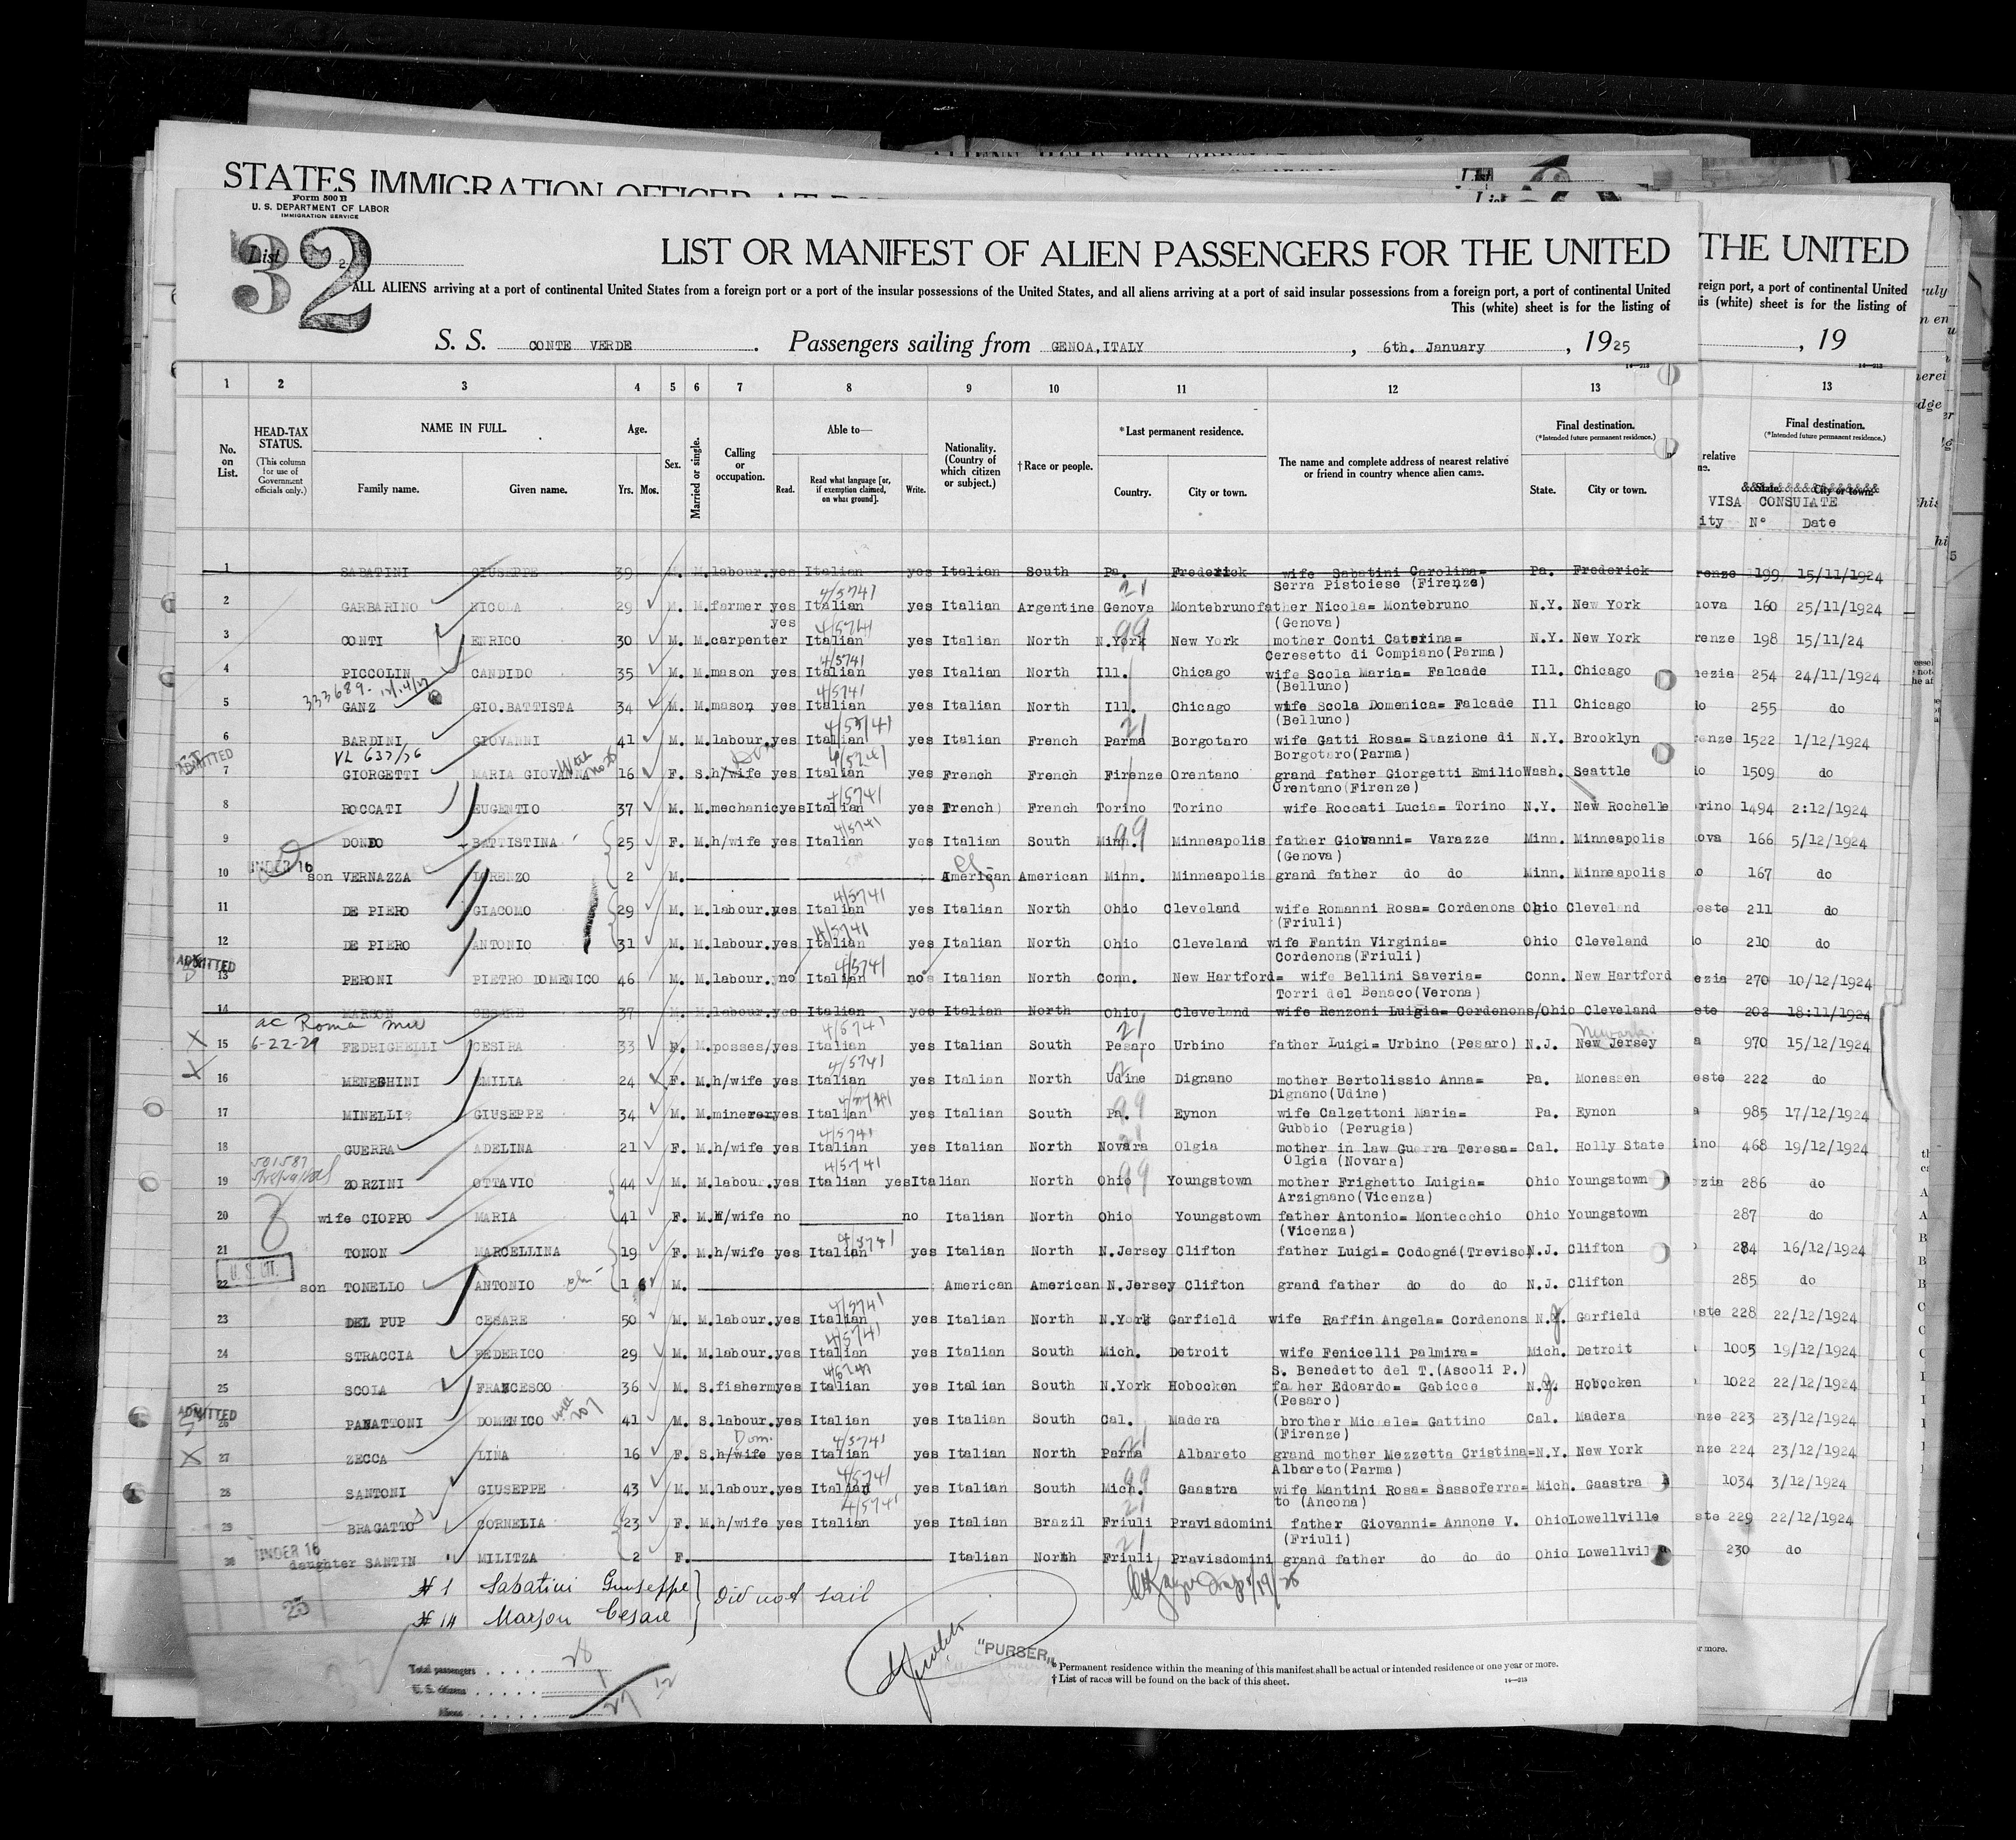 STATES IMMIGRATION OFFICER AT
Form 500 B
U. S. DEPARTMENT OF LABOR
IMMIGRATION SERVICE
List 2
32
LIST OR MANIFEST OF ALIEN PASSENGERS FOR THE UNITED
THE UNITED
ALL ALIENS arriving at a port of continental United States from a foreign port or a port of the insular possessions of the United States, and all aliens arriving at a port of said insular possessions from a foreign port, a port of continental United
This (white) sheet is for the listing of
reign port, a port of continental United
is (white) sheet is for the listing of
S. S. CONTE VERDE. Passengers sailing from GENOA,ITALY, 6th. January, 1925
, 19
1 2 3 4 5 6 7 8 9 10 11 12 13 13
No. on List. HEAD-TAX STATUS. (This column for use of Government officials only.) NAME IN FULL. Family name. Given name. Age. Yrs. Mos. Sex. Married or single. Calling or occupation. Able to— Read. Read what language [or, if exemption claimed, on what ground]. Write. Nationality. (Country of which citizen or subject.) †Race or people. *Last permanent residence. Country. City or town. The name and complete address of nearest relative or friend in country whence alien came. Final destination. (*Intended future permanent residence.) State. City or town.
Final destination. (*Intended future permanent residence.)
State. City or town.
VISA CONSUIATE
ity Nº Date
1 SABATINI GIUSEPPE 39 M. M. labour. yes Italian yes Italian South Pa. Frederick wife Sabatini Carolina= Pa. Frederick renze 199 15/11/1924
Serra Pistoiese (Firenze)
2 GARBARINO NICOLA 29 M. M. farmer yes Italian yes Italian Argentine Genova Montebruno father Nicola= Montebruno N.Y. New York nova 160 25/11/1924
(Genova)
3 CONTI ENRICO 30 M. M. carpenter yes Italian yes Italian North N.York New York mother Conti Caterina= N.Y. New York renze 198 15/11/24
Ceresetto di Compiano(Parma)
4 PICCOLIN CANDIDO 35 M. M. mason yes Italian yes Italian North Ill. Chicago wife Scola Maria= Falcade Ill. Chicago nezia 254 24/11/1924
(Belluno)
333689.
5 GANZ GIO.BATTISTA 34 M. M. mason yes Italian yes Italian North Ill. Chicago wife Scola Domenica= Falcade Ill Chicago do 255 do
(Belluno)
6 BARDINI GIOVANNI 41 M. M. labour. yes Italian yes Italian French Parma Borgotaro wife Gatti Rosa= Stazione di N.Y. Brooklyn renze 1522 1/12/1924
Borgotaro(Parma)
ADMITTED VL 637/36
7 GIORGETTI MARIA GIOVANNA 16 F. S. h/wife yes Italian yes French French Firenze Orentano grand father Giorgetti Emilio Wash. Seattle do 1509 do
Orentano(Firenze)
8 ROCCATI EUGENTIO 37 M. M. mechanic yes Italian yes French) French Torino Torino wife Roccati Lucia= Torino N.Y. New Rochelle orino 1494 2:12/1924
9 DONDO BATTISTINA 25 F. M. h/wife yes Italian yes Italian South Minn. Minneapolis father Giovanni= Varazze Minn. Minneapolis ova 166 5/12/1924
(Genova)
UNDER 16
10 son VERNAZZA LORENZO 2 M. American American Minn. Minneapolis grand father do do Minn. Minneapolis o 167 do
11 DE PIERO GIACOMO 29 M. M. labour. yes Italian yes Italian North Ohio Cleveland wife Romanni Rosa= Cordenons Ohio Cleveland este 211 do
(Friuli)
12 DE PIERO ANTONIO 31 M. M. labour. yes Italian yes Italian North Ohio Cleveland wife Fantin Virginia= Ohio Cleveland lo 210 do
Cordenons(Friuli)
ADMITTED
13 PERONI PIETRO DOMENICO 46 M. M. labour. no Italian no Italian North Conn. New Hartford= wife Bellini Saveria= Conn. New Hartford ezia 270 10/12/1924
Torri del Benaco(Verona)
14 MARSON CESARE 37 M. M. labour. yes Italian yes Italian North Ohio Cleveland wife Renzoni Luigia= Cordenons/Ohio Cleveland ste 202 18:11/1924
ac Roma
6-22-29
Newark
15 FEDRIGHELLI CESIRA 33 F. M. posses/ yes Italian yes Italian South Pesaro Urbino father Luigi= Urbino (Pesaro) N.J. New Jersey a 970 15/12/1924
16 MENEGHINI EMILIA 24 F. M. h/wife yes Italian yes Italian North Udine Dignano mother Bertolissio Anna= Pa. Monessen este 222 do
Dignano(Udine)
17 MINELLI GIUSEPPE 34 M. M. minerer yes Italian yes Italian South Pa. Eynon wife Calzettoni Maria= Pa. Eynon a 985 17/12/1924
Gubbio (Perugia)
18 GUERRA ADELINA 21 F. M. h/wife yes Italian yes Italian North Novara Olgia mother in law Guerra Teresa= Cal. Holly State ino 468 19/12/1924
Olgia (Novara)
501587
19 ZORZINI OTTAVIO 44 M. M. labour. yes Italian yes Italian North Ohio Youngstown mother Frighetto Luigia= Ohio Youngstown ezia 286 do
Arzignano(Vicenza)
20 wife CIOPPO MARIA 41 F. M. H/wife no no Italian North Ohio Youngstown father Antonio= Montecchio Ohio Youngstown 287 do
(Vicenza)
21 TONON MARCELLINA 19 F. M. h/wife yes Italian yes Italian North N.Jersey Clifton father Luigi= Codogné(Treviso) N.J. Clifton 284 16/12/1924
U. S. CIT.
22 son TONELLO ANTONIO 1 6 M. American American N.Jersey Clifton grand father do do do N.J. Clifton 285 do
23 DEL PUP CESARE 50 M. M. labour. yes Italian yes Italian North N.York Garfield wife Raffin Angela= Cordenons N.J. Garfield ste 228 22/12/1924
24 STRACCIA FEDERICO 29 M. M. labour. yes Italian yes Italian South Mich. Detroit wife Fenicelli Palmira= Mich. Detroit 1005 19/12/1924
S. Benedetto del T.(Ascoli P.)
25 SCOLA FRANCESCO 36 M. S. fisherm yes Italian yes Italian South N.York Hobocken father Edoardo= Gabicce N.J. Hobocken 1022 22/12/1924
(Pesaro)
ADMITTED
26 PANATTONI DOMENICO 41 M. S. labour. yes Italian yes Italian South Cal. Madera brother Michele= Gattino Cal. Madera nze 223 23/12/1924
(Firenze)
Dom.
27 ZECCA LINA 16 F. S. h/wife yes Italian yes Italian North Parma Albareto grand mother Mezzetta Cristina= N.Y. New York nze 224 23/12/1924
Albareto(Parma)
28 SANTONI GIUSEPPE 43 M. M. labour. yes Italian yes Italian South Mich. Gaastra wife Mantini Rosa= Sassoferra= Mich. Gaastra 1034 3/12/1924
to (Ancona)
29 BRAGATTO CORNELIA 23 F. M. h/wife yes Italian yes Italian Brazil Friuli Pravisdomini father Giovanni= Annone V. Ohio Lowellville ste 229 22/12/1924
(Friuli)
UNDER 16
30 daughter SANTIN MILITZA 2 F. Italian North Friuli Pravisdomini grand father do do do Ohio Lowellvil 230 do
#1 Sabatini Giuseppe
#14 Marson Cesare
Did not sail
25
Total passengers 28
U. S. citizens 1
Aliens 27 12
"PURSER"
* Permanent residence within the meaning of this manifest shall be actual or intended residence of one year or more.
† List of races will be found on the back of this sheet.
or more.